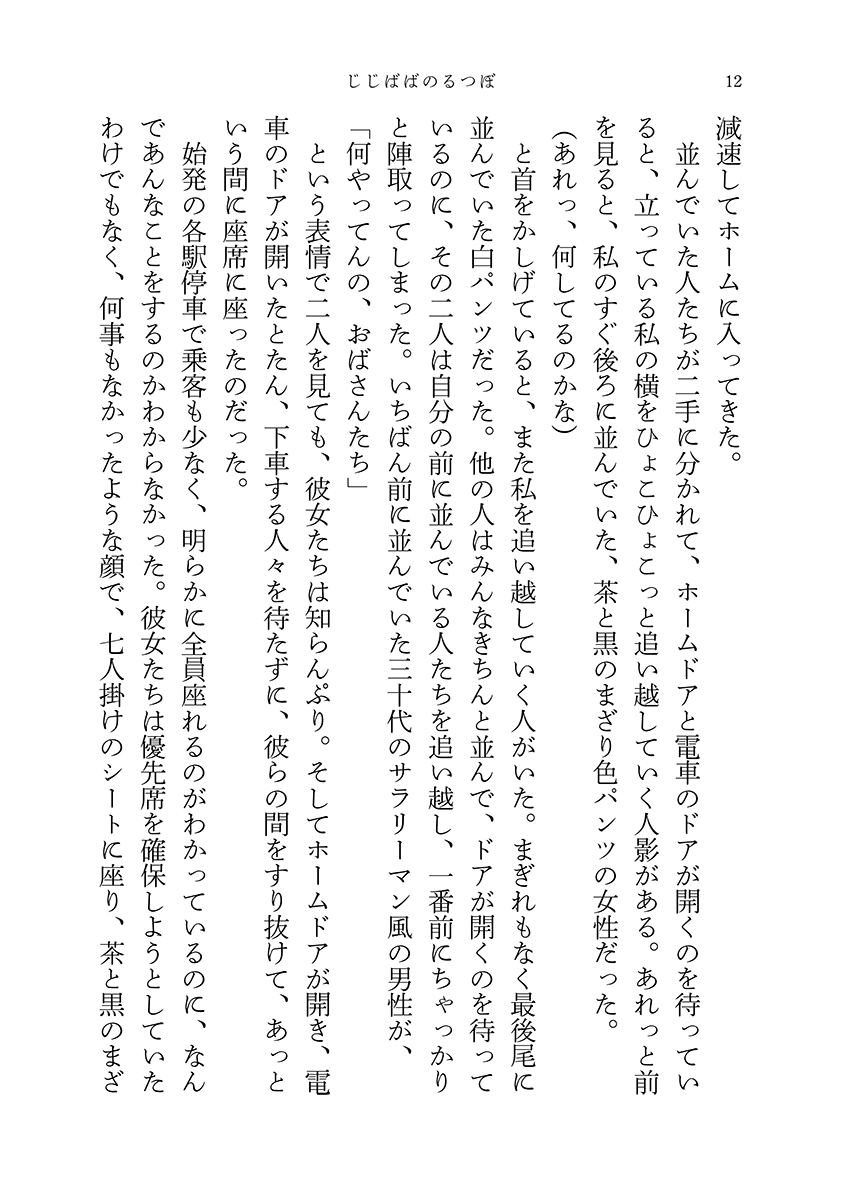 じじばばのるつぼ
12
減速してホームに入ってきた。
　並んでいた人たちが二手に分かれて、ホームドアと電車のドアが開くのを待ってい
ると、立っている私の横をひょこひょこっと追い越していく人影がある。あれっと前
を見ると、私のすぐ後ろに並んでいた、茶と黒のまざり色パンツの女性だった。
（あれっ、何してるのかな）
　と首をかしげていると、また私を追い越していく人がいた。まぎれもなく最後尾に
並んでいた白パンツだった。他の人はみんなきちんと並んで、ドアが開くのを待って
いるのに、その二人は自分の前に並んでいる人たちを追い越し、一番前にちゃっかり
と陣取ってしまった。いちばん前に並んでいた三十代のサラリーマン風の男性が、
「何やってんの、おばさんたち」
　という表情で二人を見ても、彼女たちは知らんぷり。そしてホームドアが開き、電
車のドアが開いたとたん、下車する人々を待たずに、彼らの間をすり抜けて、あっと
いう間に座席に座ったのだった。
　始発の各駅停車で乗客も少なく、明らかに全員座れるのがわかっているのに、なん
であんなことをするのかわからなかった。彼女たちは優先席を確保しようとしていた
わけでもなく、何事もなかったような顔で、七人掛けのシートに座り、茶と黒のまざ